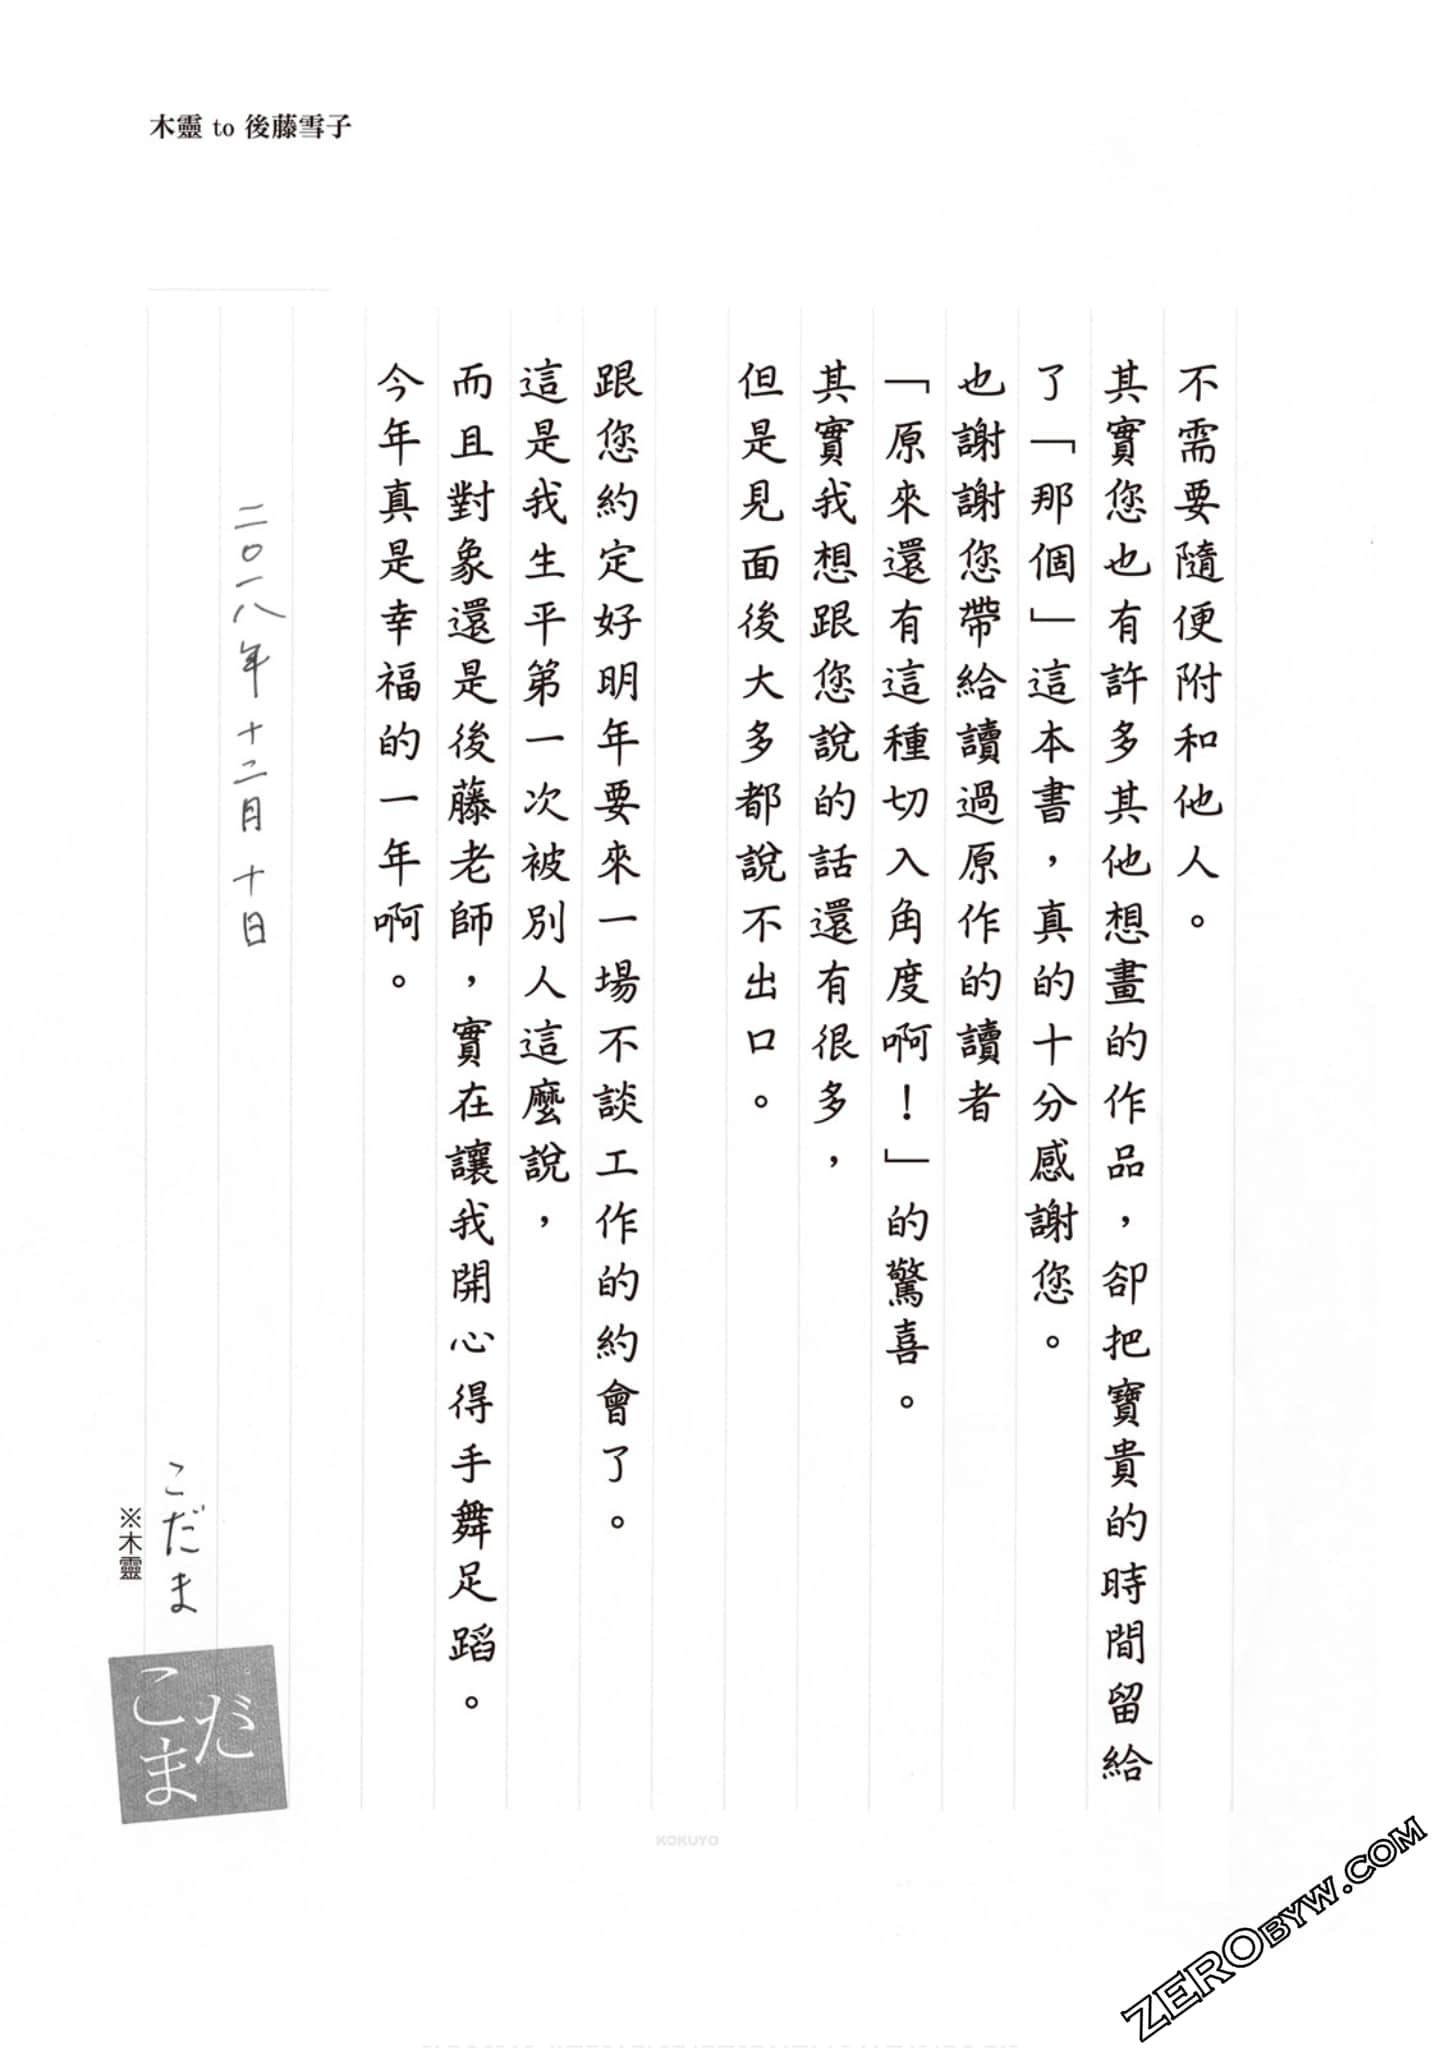 木靈 to 後藤雪子
不需要隨便附和他人。
其實您也有許多其他想畫的作品，卻把寶貴的時間留給
了「那個」這本書，真的十分感謝您。
也謝謝您帶給讀過原作的讀者
「原來還有這種切入角度啊！」的驚喜。
其實我想跟您說的話還有很多，
但是見面後大多都說不出口。
跟您約定好明年要來一場不談工作的約會了。
這是我生平第一次被別人這麼說，
而且對象還是後藤老師，實在讓我開心得手舞足蹈。
今年真是幸福的一年啊。
二〇一八年 十二月 十日
こだま
※木靈
こだま
KOKUYO
ZEROBYW.COM